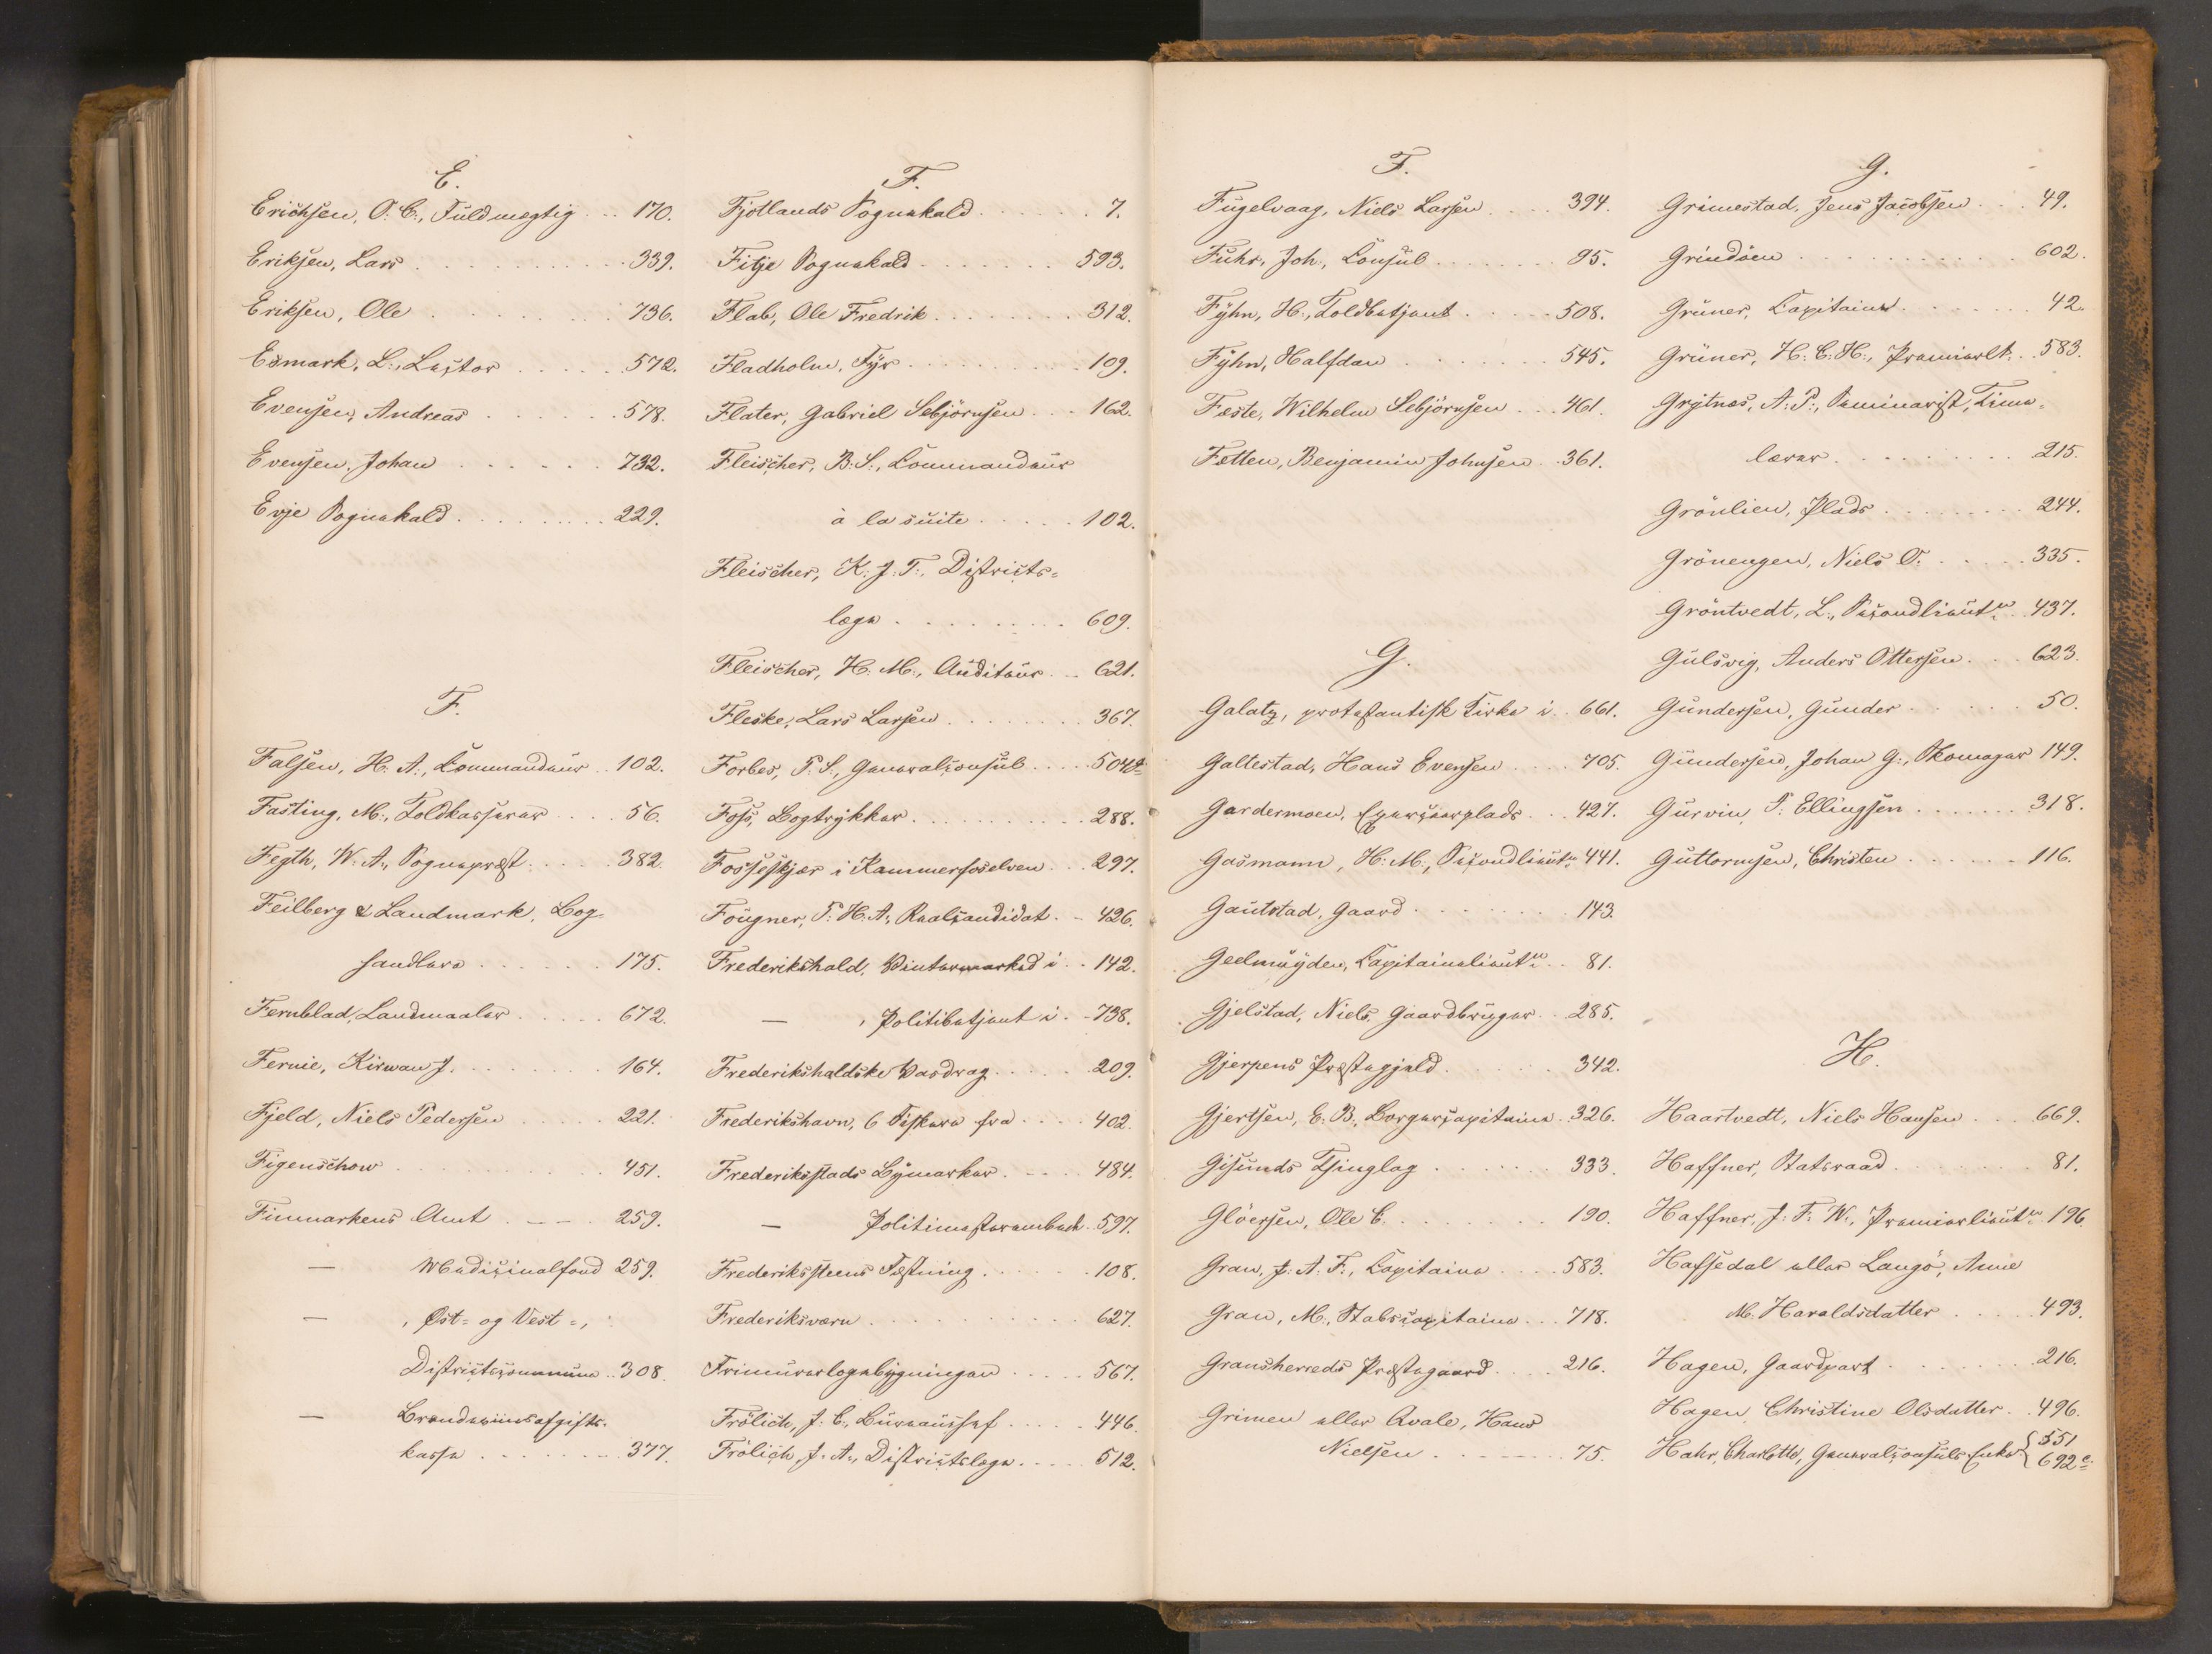 E.
Erichsen, O. C., Fuldmægtig . . 170.
Eriksen, Lars . . . . . 339.
Eriksen, Ole . . . . . 736.
Esmark, L., Lector . . . . . 572.
Evensen, Andreas . . . . . 578.
Evensen, Johan . . . . . 732.
Evje Sognekald . . . . . 229.
F.
Falsen, H. A., Commandeur . . 102.
Fasting, M., Toldkasserer . . . . 56.
Fegth, W. A., Sogneprest . . . . 382.
Feilberg & Landmark, Bog-
handlere . . . . . 175.
Fernblad, Landmaaler . . . . . 672.
Fernie, Kirwan J. . . . . . 164.
Fjeld, Niels Pedersen . . . . . 221.
Figenschow . . . . . 451.
Finmarkens Amt . . . . 259.
— Medicinalfond 259.
— , Øst- og Vest-,
Districtscommune . . 308.
— Brændeviinsafgifts-
kasse . . . . . 377.
F.
Fjotlands Sognekald . . . . . 7.
Fitje Sognekald . . . . . 593.
Flab, Ole Fredrik . . . . . 312.
Fladholm, Fyr . . . . . 109.
Flater, Gabriel Sebjörnsen . . . 162.
Fleischer, B. S., Commandeur
à la suite . . . . . 102.
Fleischer, K. J. F., Districts-
læge . . . . . 609.
Fleischer, H. M., Auditeur . . . 621.
Fleske, Lars Larsen . . . . . 367.
Forbes, P. S., Generalconsul . . . . 504
Foss, Bogtrykker . . . . . 288.
Fosseskjær i Kammerfoselven . . . 297.
Fougner, P. H. A., Realcandidat . . 426.
Frederikshald, Vintermarked i . . 142.
— , Politibetjent i . . 738.
Frederikshaldske Vasdrag . . . . . 209.
Frederikshavn, 6 Fiskere fra . . . . 402.
Frederikstads Bymarker . . . . 484.
— Politimesterembede . . 597.
Frederikssteens Fæstning . . . . . 108.
Frederiksværn . . . . . 627.
Frimurerlogebygningen . . . . . 567.
Frölich, J. C., Bureauchef . . . . . 446.
Frölich, J. A., Districtslæge . . . . . 512.
F.
Fugelvaag, Niels Larsen . . . . 394.
Fuhr, Joh., Consul . . . . . 95.
Fyhn, H., Toldbetjent . . . . . 508.
Fyhn, Halfdan . . . . . 545.
Fæste, Wilhelm Sebjörnsen . . . 461.
Fætten, Benjamin Johnsen . . 361.
G.
Galatz, protestantisk Kirke i . . 661.
Galtestad, Hans Evensen . . . . 705.
Gardermoen, Exerceerplads . . . 427.
Gasmann, H. M., Secondlieutn. 441.
Gautstad, Gaard . . . . . 143.
Geelmuyden, Capitainlieutn. . . 81.
Gjelstad, Niels, Gaardbruger . . 285.
Gjerpens Præstegjeld . . . . . 342.
Gjertsen, E. B., Borgercapitaine . 326.
Gisunds Thinglag . . . . . 333.
Glöersen, Ole C. . . . . . 190.
Gran, J. A. F., Capitaine . . . . 583.
Gran, M., Stabscapitaine . . . 718.
Gransherreds Præstegaard . . . . 216.
Grimen eller Qvale, Hans
Nielsen . . . . . 75.
G.
Grimestad, Jens Jacobsen . . . 49.
Grindöen . . . . . 602.
Grüner, Capitaine . . . . . 42.
Grüner, H. C. H., Premierlt. . . 583.
Grytnes, A. P., Seminarist, Time-
lærer . . . . . 215.
Grönlien, Plads . . . . . 244.
Grönengen, Niels O. . . . . . 335.
Gröntvedt, L., Secondlieutn. . . 437.
Gulsvig, Anders Ottersen . . . 623.
Gundersen, Gunder . . . . . 50.
Gundersen, Johan G., Skomager 149.
Gurvin, P. Ellingsen . . . . . 318.
Guttormsen, Christen . . . . . 116.
H.
Haartvedt, Niels Hansen . . . 669.
Haffner, Statsraad . . . . . 81.
Haffner, J. F. W., Premierlieutn. 196.
Hafsedal eller Langö, Anne
M. Haraldsdatter . . . . 493.
Hagen, Gaardpart . . . . . 216.
Hagen, Christine Olsdatter . . 496.
Hahr, Charlotte, Generalconsuls Enke { 551
692